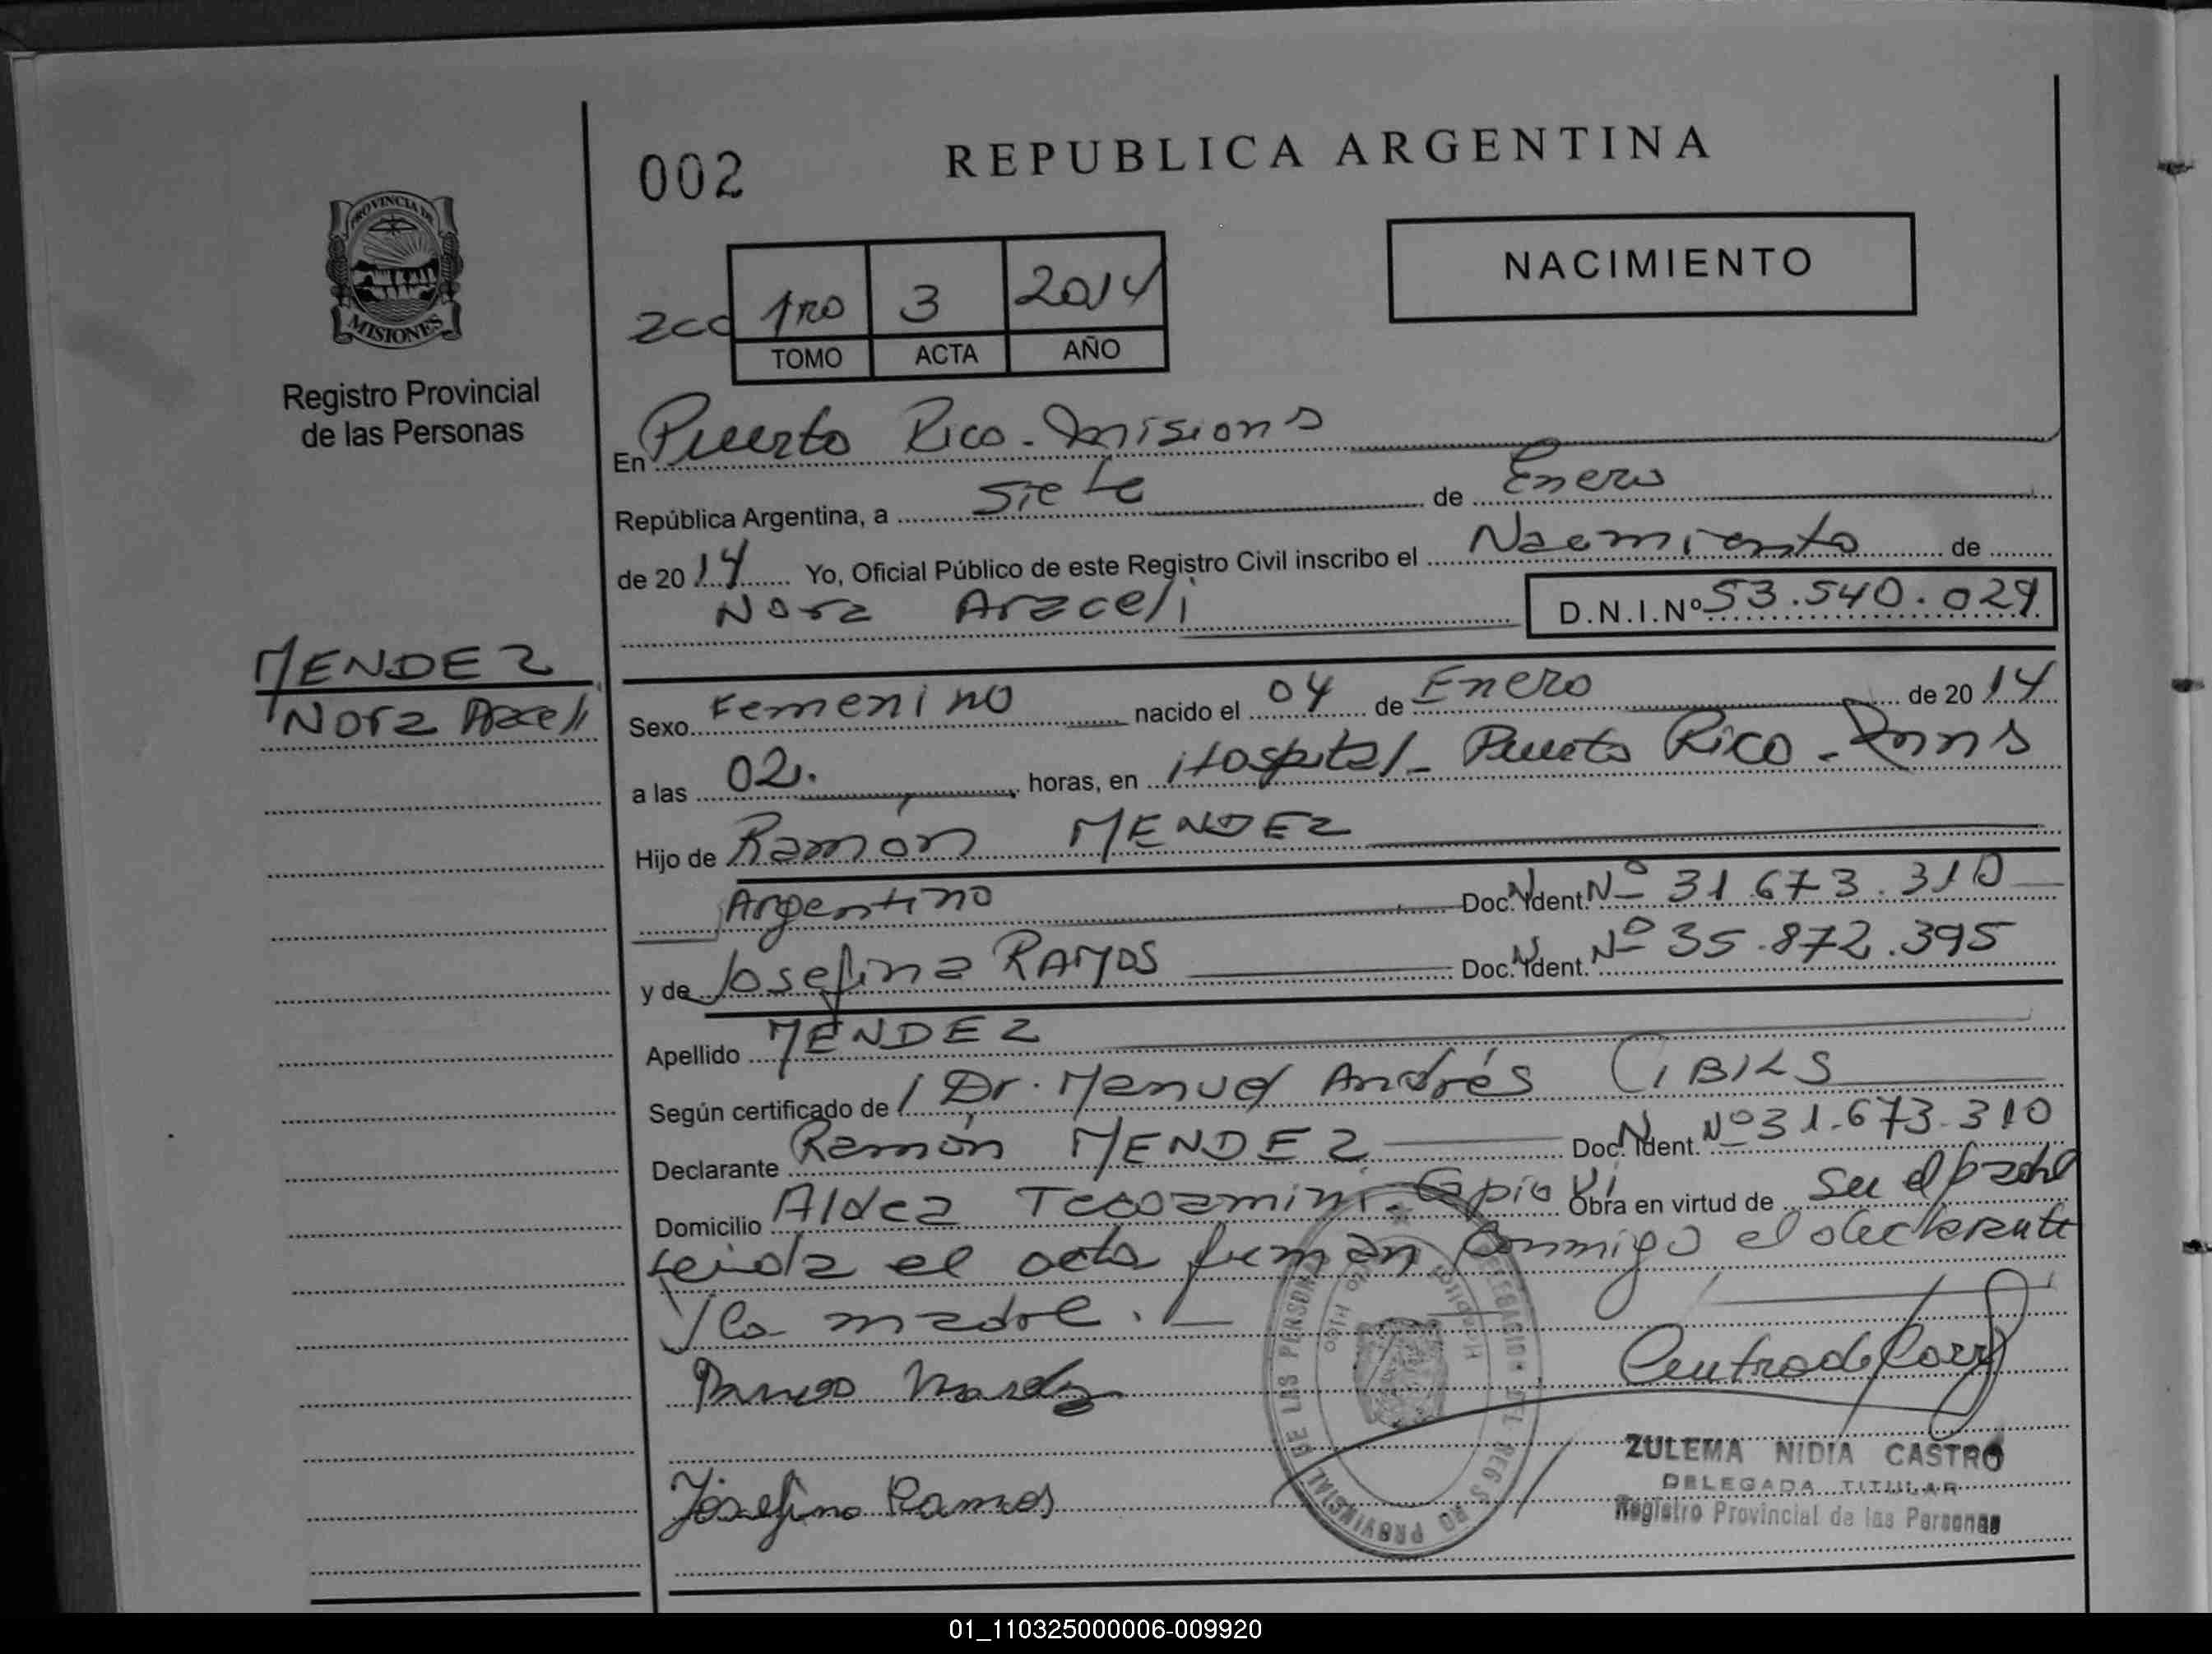 002
REPUBLICA ARGENTINA
PROVINCIA DE
MISIONES
Registro Provincial
de las Personas
NACIMIENTO
1ro 3 2014
TOMO ACTA AÑO
En Puerto Rico - Misions
República Argentina, a siete de Enero
de 2014 Yo, Oficial Público de este Registro Civil inscribo el Nacimiento de
Nora Araceli D.N.I.Nº 53.540.029
MENDEZ
Nora Araceli
Sexo Femenino nacido el 04 de Enero de 2014
a las 02. horas, en Hospital - Puerto Rico - Mnns
Hijo de Ramón MENDEZ
Argentino Doc. Ident. Nº 31.673.310
y de Josefina RAMOS Doc. Ident. Nº 35.872.395
Apellido MENDEZ
Según certificado de / Dr. Manuel Andrés CIBILS
Declarante Ramón MENDEZ Doc. Ident. Nº 31.673.310
Domicilio Aldea Capiovi Obra en virtud de ser el padre
Leida el acta firman conmigo el declarante
y la madre.
Josefina Ramos
ZULEMA NIDIA CASTRO
DELEGADA TITULAR
Registro Provincial de las Personas
01_110325000006-009920